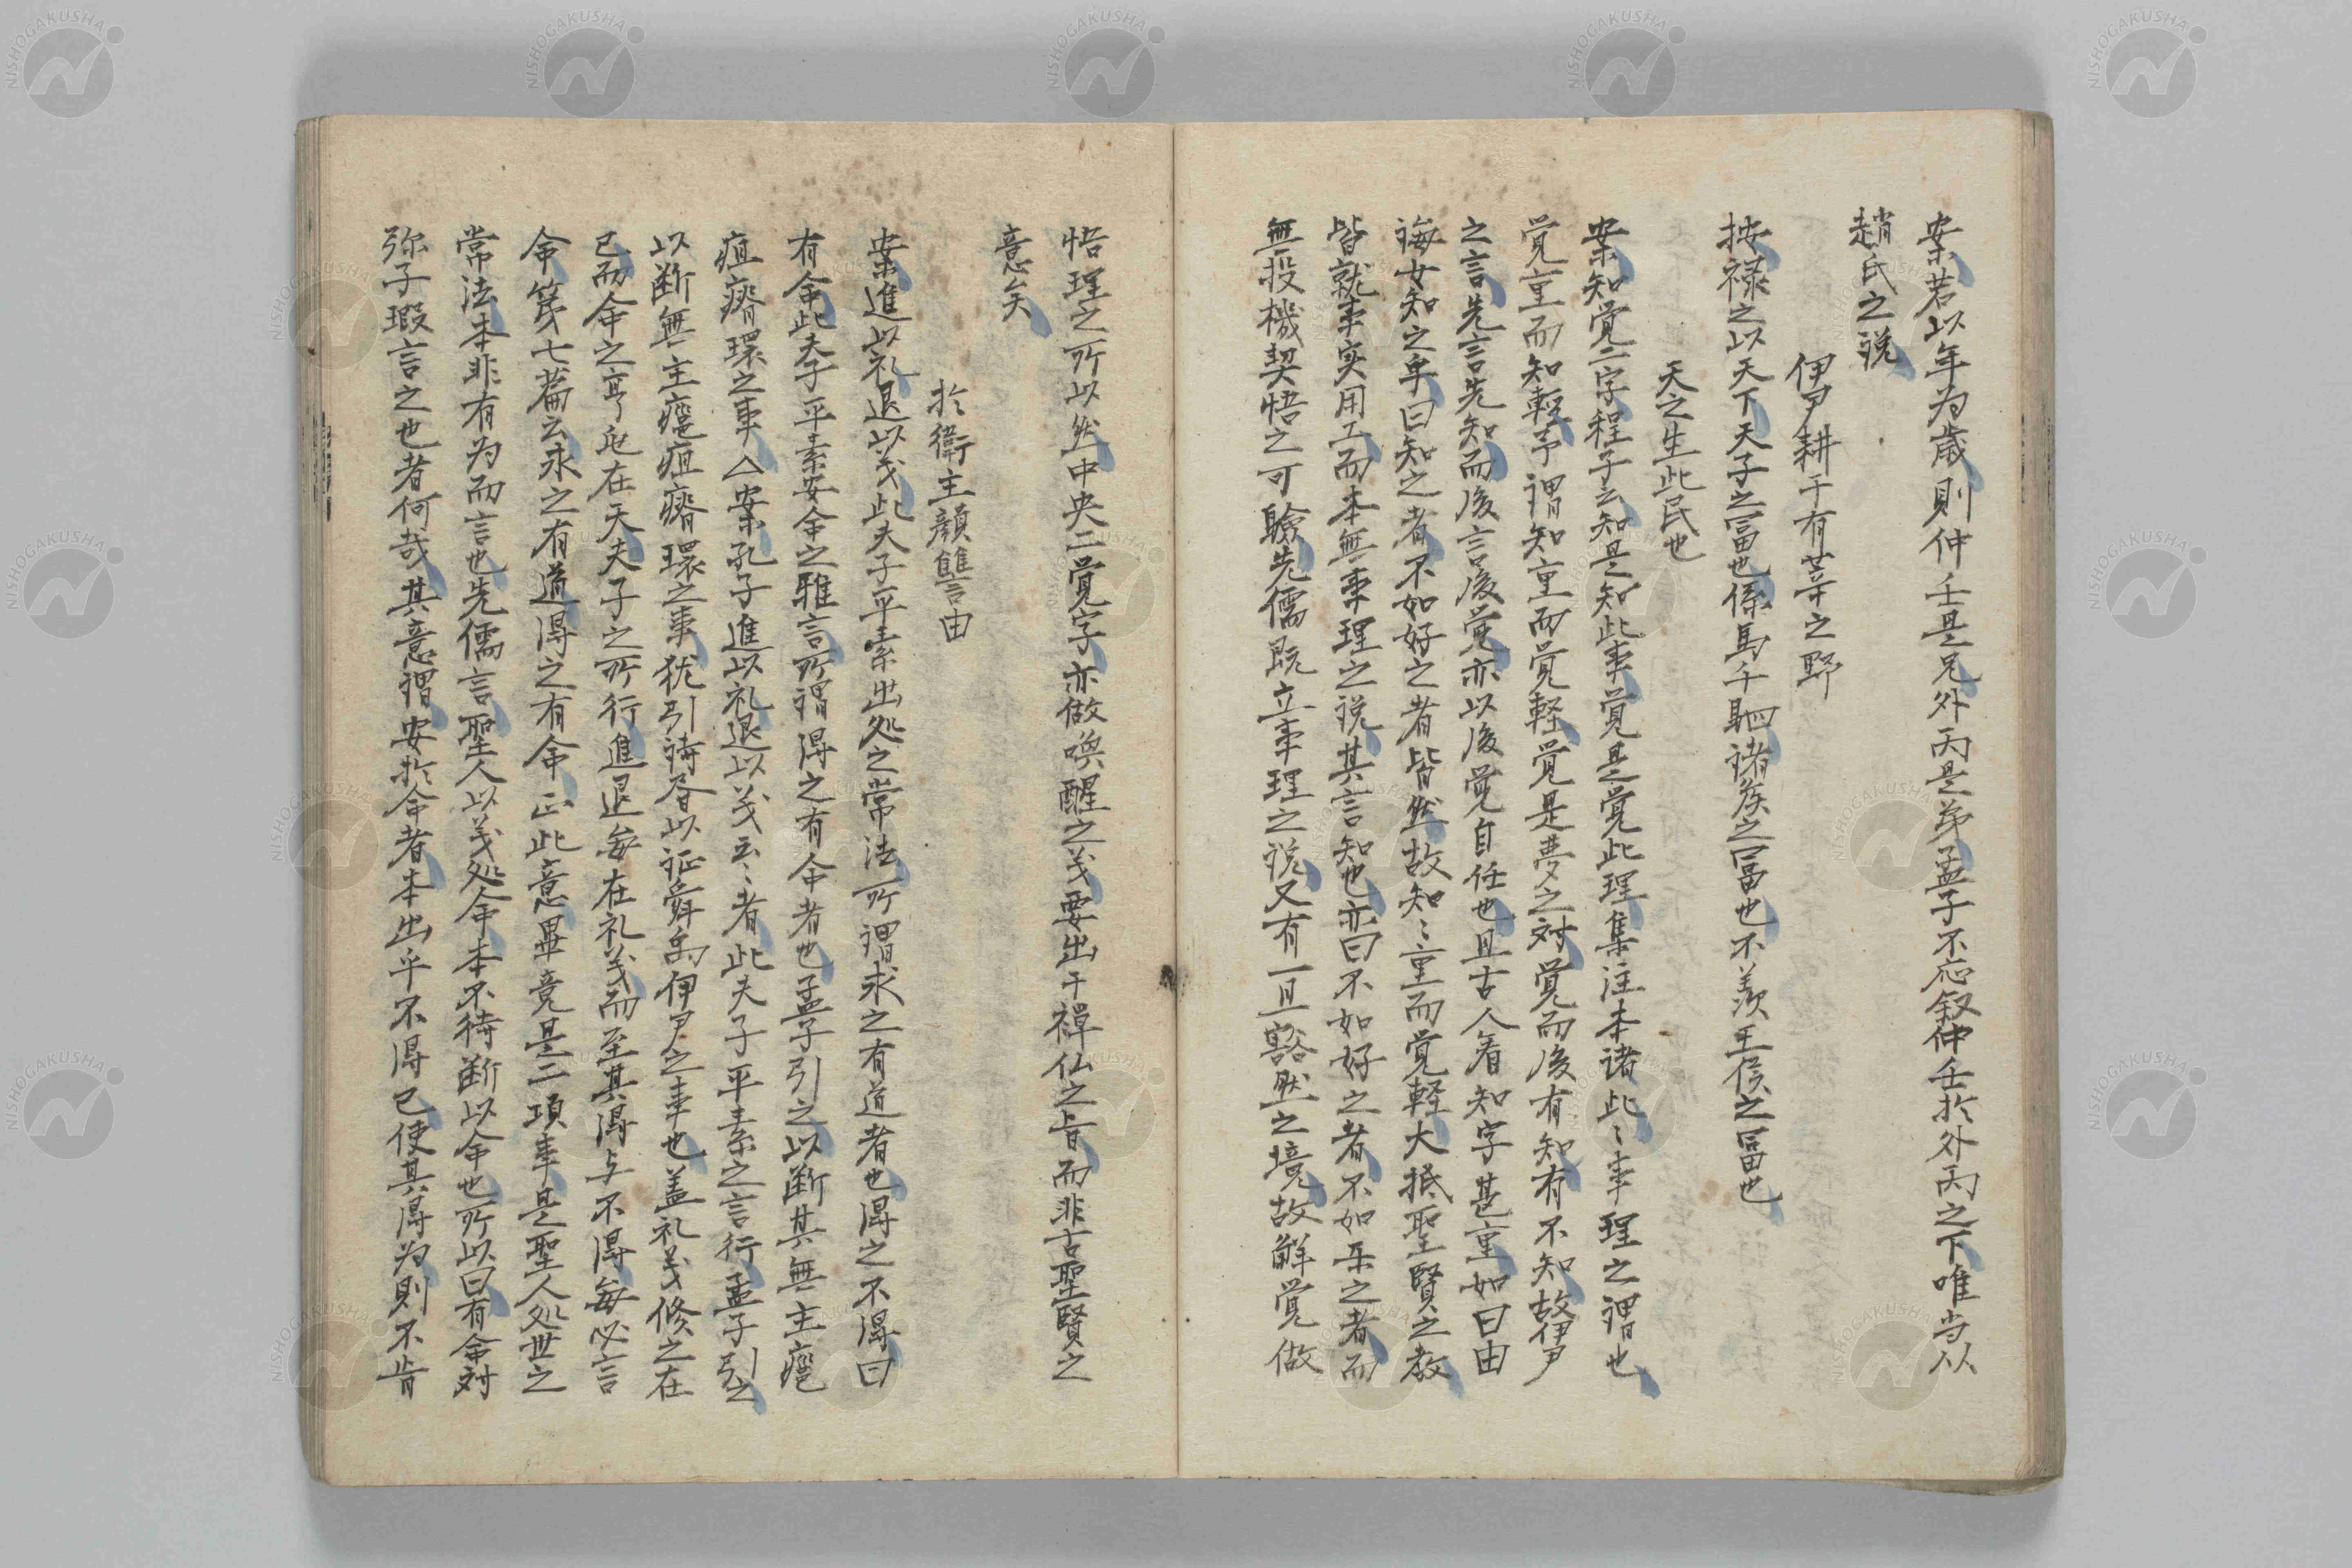 案若以年为歳則仲壬是兄外丙是弟孟子不応叙仲壬於外丙之下唯当以
趙氏之説
伊尹耕于有莘之野
按禄之以天下天子之冨也係馬千駟諸矦之冨也不羨王侯之冨也
天之生此民也
案知覚二字程子云知是知此事覚是覚此理集注本諸此〻事理之謂也
覚重而知軽予謂知重而覚軽覚是夢之対覚而後有知有不知故伊尹
之言先言先知而後言後覚亦以後覚自任也且古人着知字甚重如曰由
誨女知之乎曰知之者不如好之者皆然故知〻重而覚軽大抵聖賢之教
皆就事実用工而本無事理之説其言知也亦曰不如好之者不如楽之者而
無投機契悟之可験先儒既立事理之説又有一旦豁然之境故解覚做
悟理之所以然中央二覚字亦做喚醒之義要出于禅仏之旨而非古聖賢之
意矣
於衛主顔讐由
案進以礼退以义此夫子平素出処之常法所謂求之有道者也得之不得曰
有命此夫子平素安命之雅言所謂得之有命者也孟子引之以断其無主癰
疽瘠環之事△案孔子進以礼退以义云〻者此夫子平素之言行孟子引之
以断無主癰疽瘠環之事犹引祷昏以证舜禹伊尹之事也盖礼义修之在
己而命之亨屯在天夫子之所行進退每在礼义而至其得与不得每必言
命篤七篇云求之有道得之有命正此意畢竟是二項事是聖人処世之
常法本非有为而言也先儒言聖人以义処命本不待断以命也所以曰有命対
弥子瑕言之也者何哉其意謂安於命者本出乎不得已使其得为則不肯